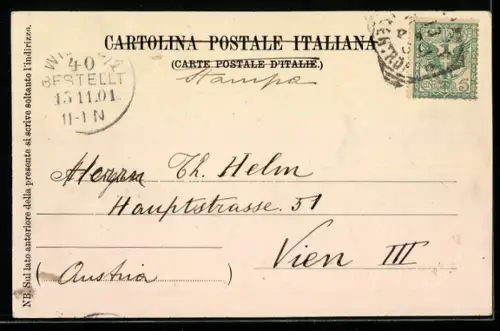 CARTOLINA POSTALE ITALIANA
(CARTE POSTALE D'ITALIE.)
Stampe
40
BESTELLT
13.11.01.
11-1 N
Th. Helm
Hauptstrasse 51
Vien III
(Austria)
NB. Sul lato anteriore della presente si scrive soltanto l'indirizzo.